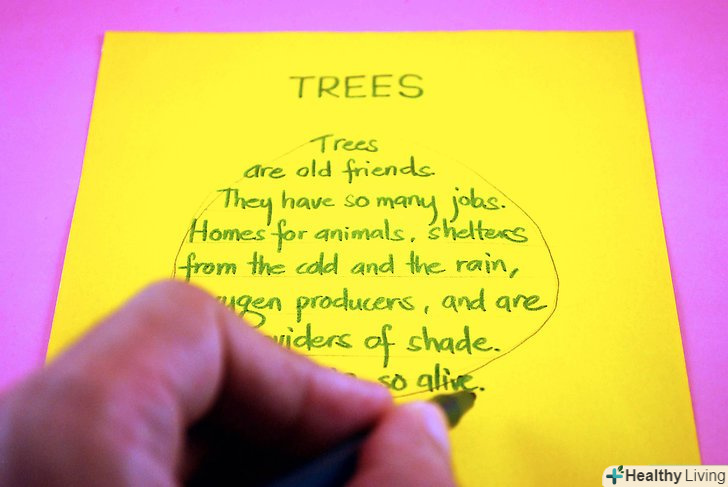 TREES
Trees
are old friends.
They have so many jobs.
Homes for animals, shelters
from the cold and the rain,
ygen producers, and are
viders of shade.
so alive.
Healthy Living